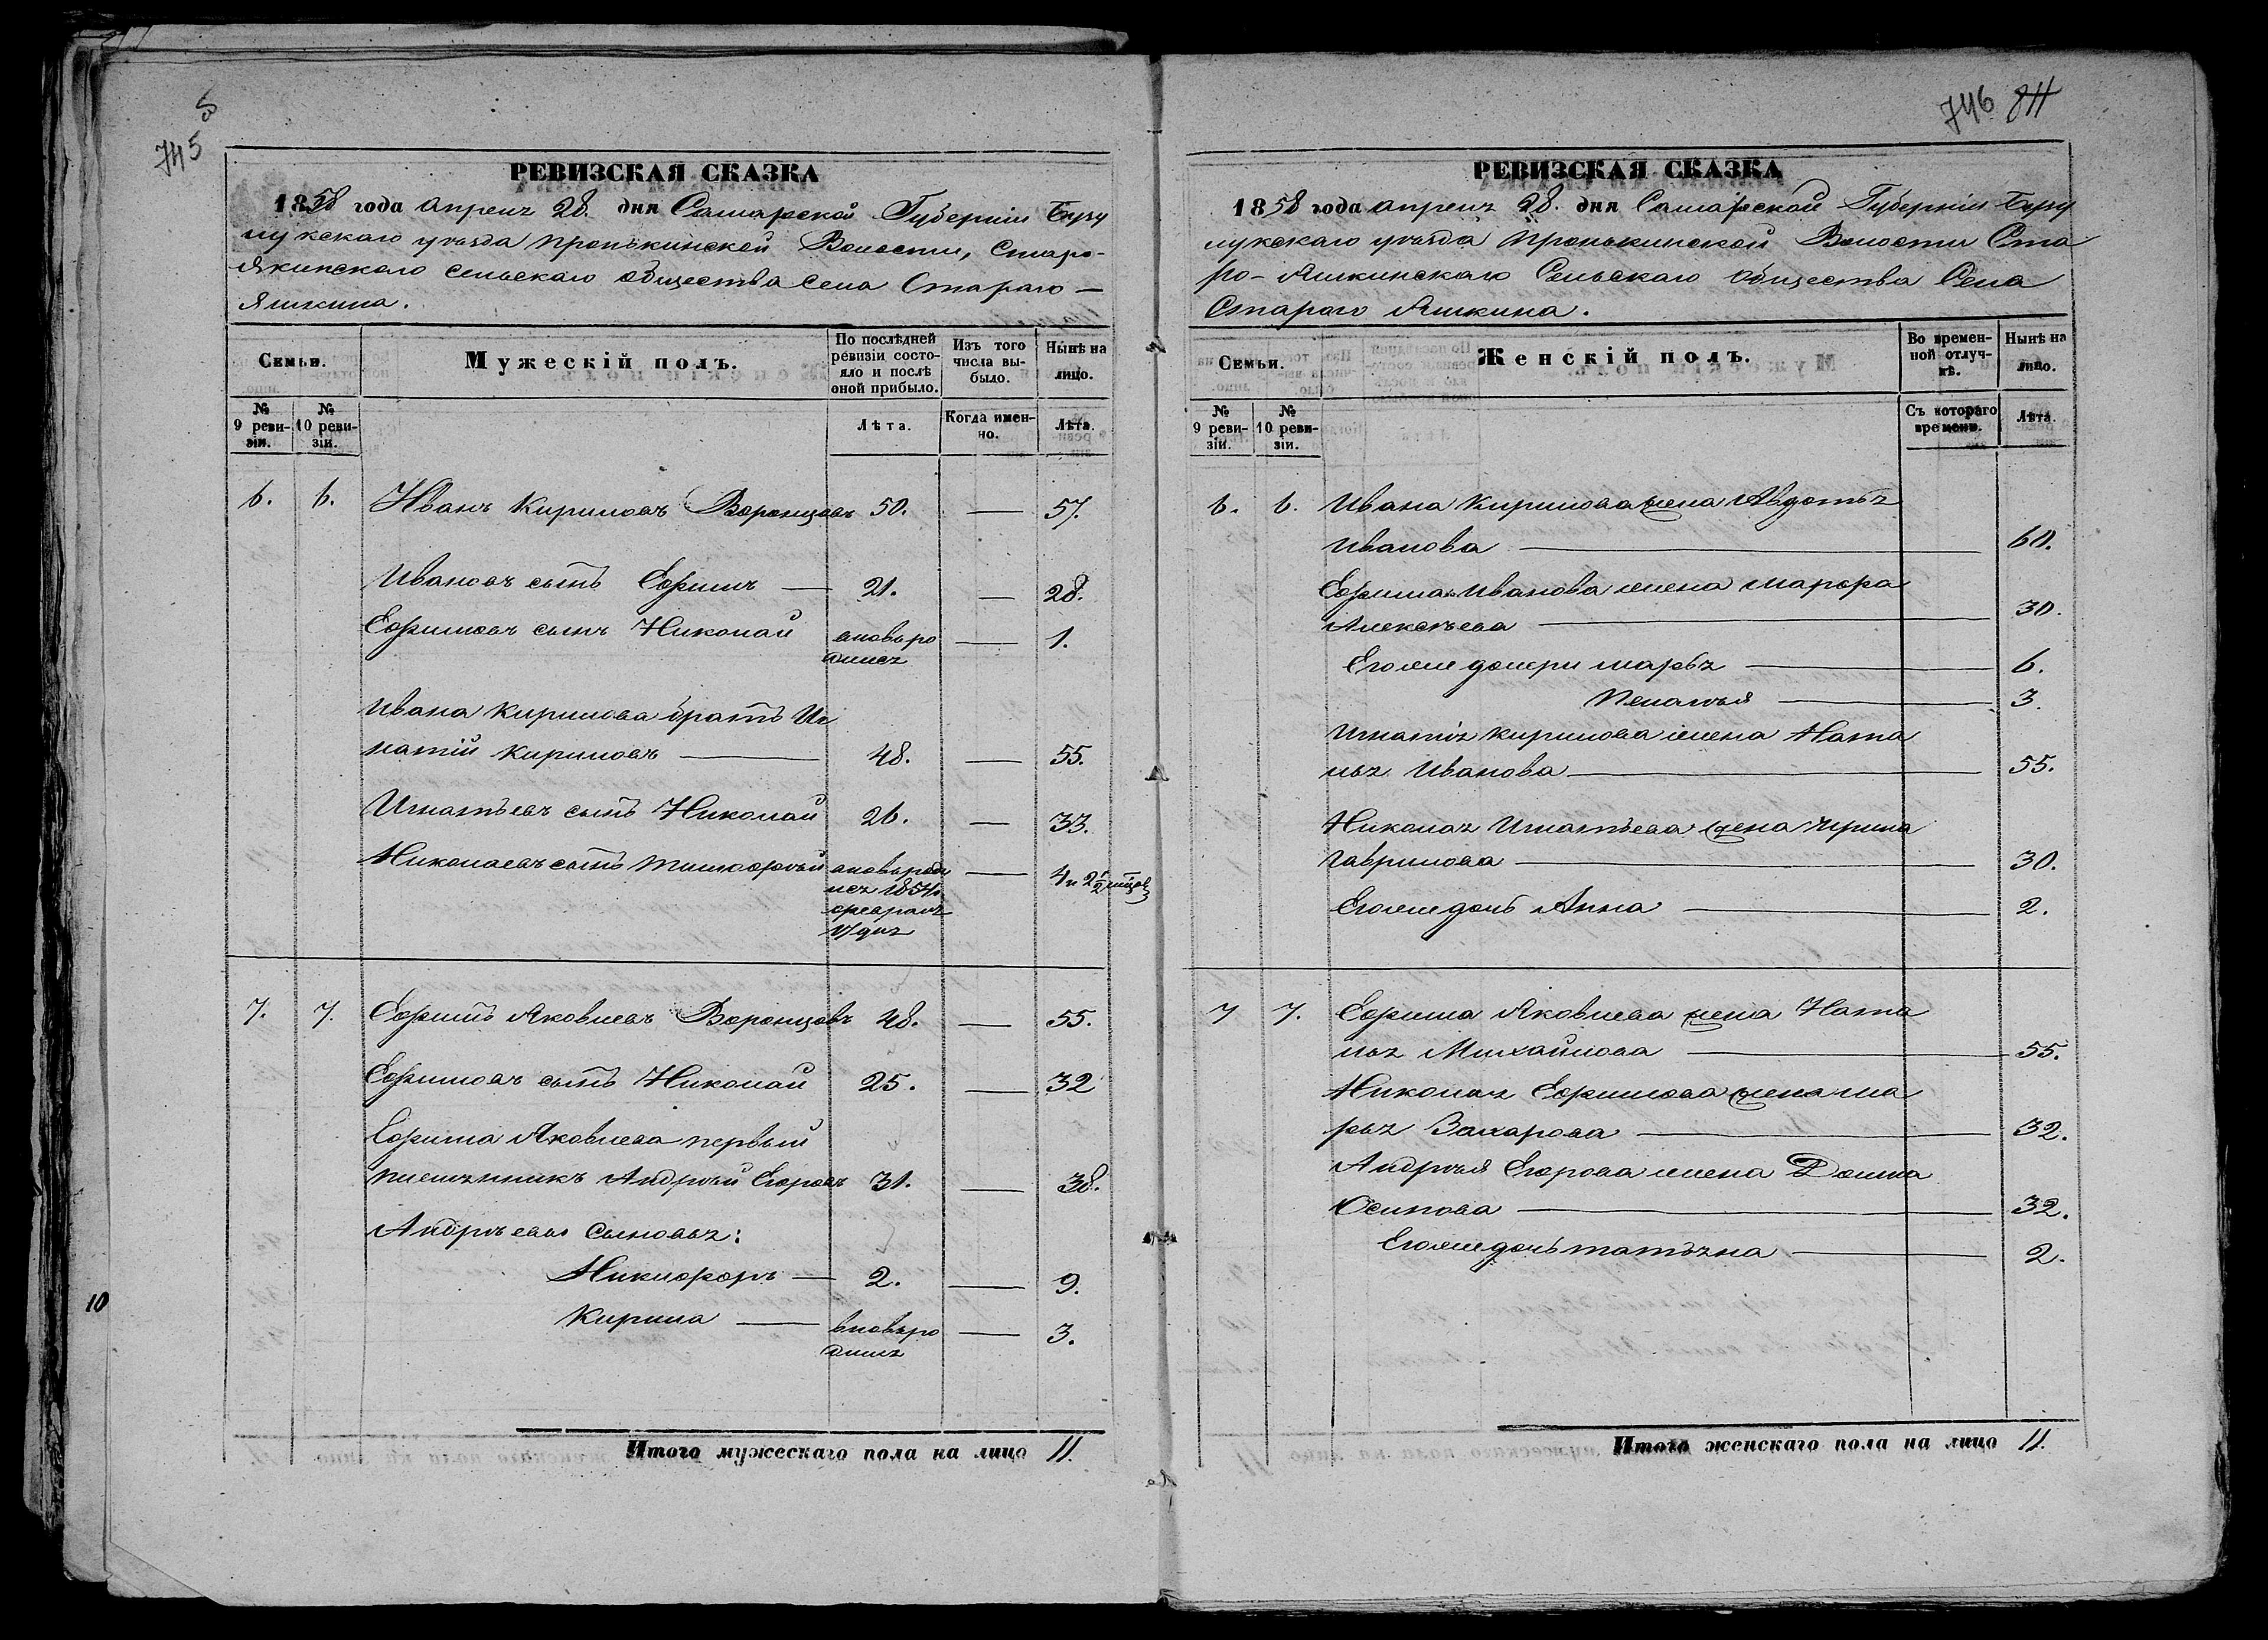 5
745
РЕВИЗСКАЯ СКАЗКА
1858 года апреля 28. дня Самарской Губерніи Бузу
лукскаго уѣзда Пронькинской Волости, Старо-
Яшкинскаго сельскаго общества села Стараго —
Яшкина.
Семьи.
Мужескій полъ.
По послѣдней ревизіи состояло и послѣ оной прибыло.
Изъ того числа выбыло.
Нынѣ на лицо.
№ 9 ревизіи.
№ 10 ревизіи.
Лѣта.
Когда именно.
Лѣта.
6. 6. Иванъ Кириловъ Воронцовъ 50. — 57.
Ивановъ сынъ Ефимъ — 21. — 28.
Ефимовъ сынъ Николай вновь ро — 1.
дился
Ивана Кирилова братъ Иг
натій Кириловъ — 48. — 55.
Игнатьевъ сынъ Николай 26. — 33.
Николаевъ сынъ Тимофѣй вновь роди — 4 и 2½ мѣсяц
лся 1854 г.
февраля
17 дня
7. 7. Ефимъ Яковлевъ Воронцовъ 48. — 55.
Ефимовъ сынъ Николай 25. — 32
Ефима Яковлева первый
племянникъ Андрѣй Егоровъ 31. — 38.
Андрѣевы сыновья:
Никифоръ — 2. — 9.
Кирила — вновь ро — 3.
дился
10
Итого мужескаго пола на лицо 11.
746 84
РЕВИЗСКАЯ СКАЗКА
1858 года апреля 28. дня Самарской Губерніи Бузу
лукскаго уѣзда Пронькинской Волости Ста
ро-Яшкинскаго Сельскаго общества Села
Стараго Яшкина.
Семьи.
Женскій полъ.
Во временной отлучкѣ.
Нынѣ на лицо.
№ 9 ревизіи.
№ 10 ревизіи.
Съ котораго времени.
Лѣта.
6. 6. Ивана Кирилова жена Авдотья
Иванова — 60.
Ефима Иванова жена Марфа
Алексѣева — 30.
Его же дочери Марья — 6.
Пелагѣя — 3.
Игнатія Кирилова жена Ната
лья Иванова — 55.
Николая Игнатьева жена Ирина
Гаврилова — 30.
Его же дочь Анна — 2.
7 7. Ефима Яковлева жена Ната
лья Михайлова — 55.
Николая Ефимова жена Ма
рья Захарова — 32.
Андрѣя Егорова жена Домна
Осипова — 32.
Его же дочь Татьяна — 2.
Итого женскаго пола на лицо 11.